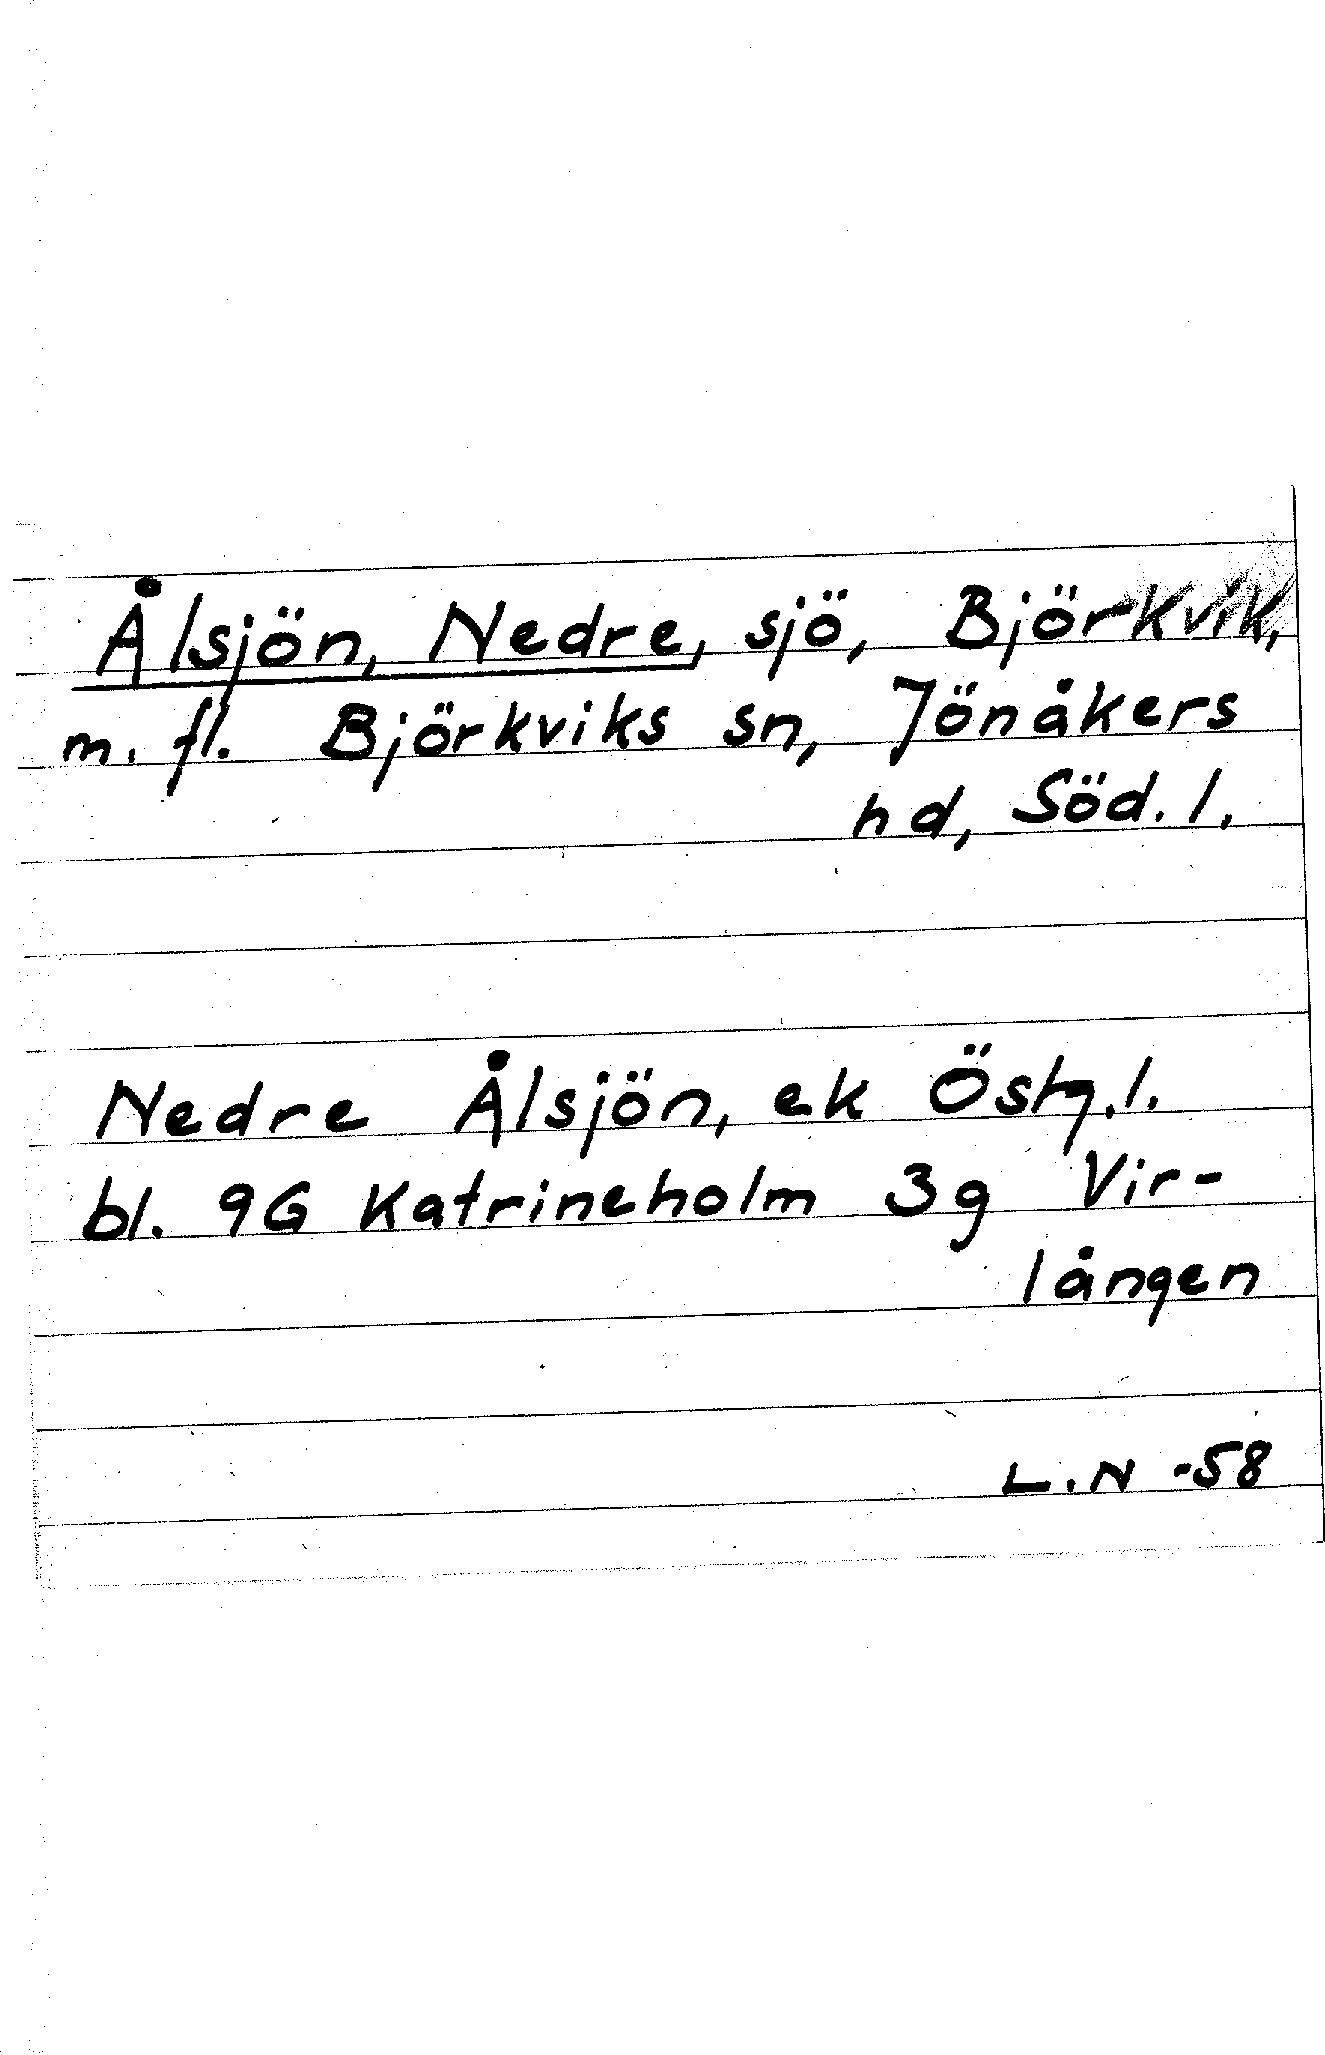 Ålsjön, Nedre, sjö, Björkvik,
m. fl. Björkviks sn, Jönåkers
hd, Söd. l.
Nedre Ålsjön, ek Östg. l.
bl. 9G Katrineholm 3g Vir-
lången
L.N -58